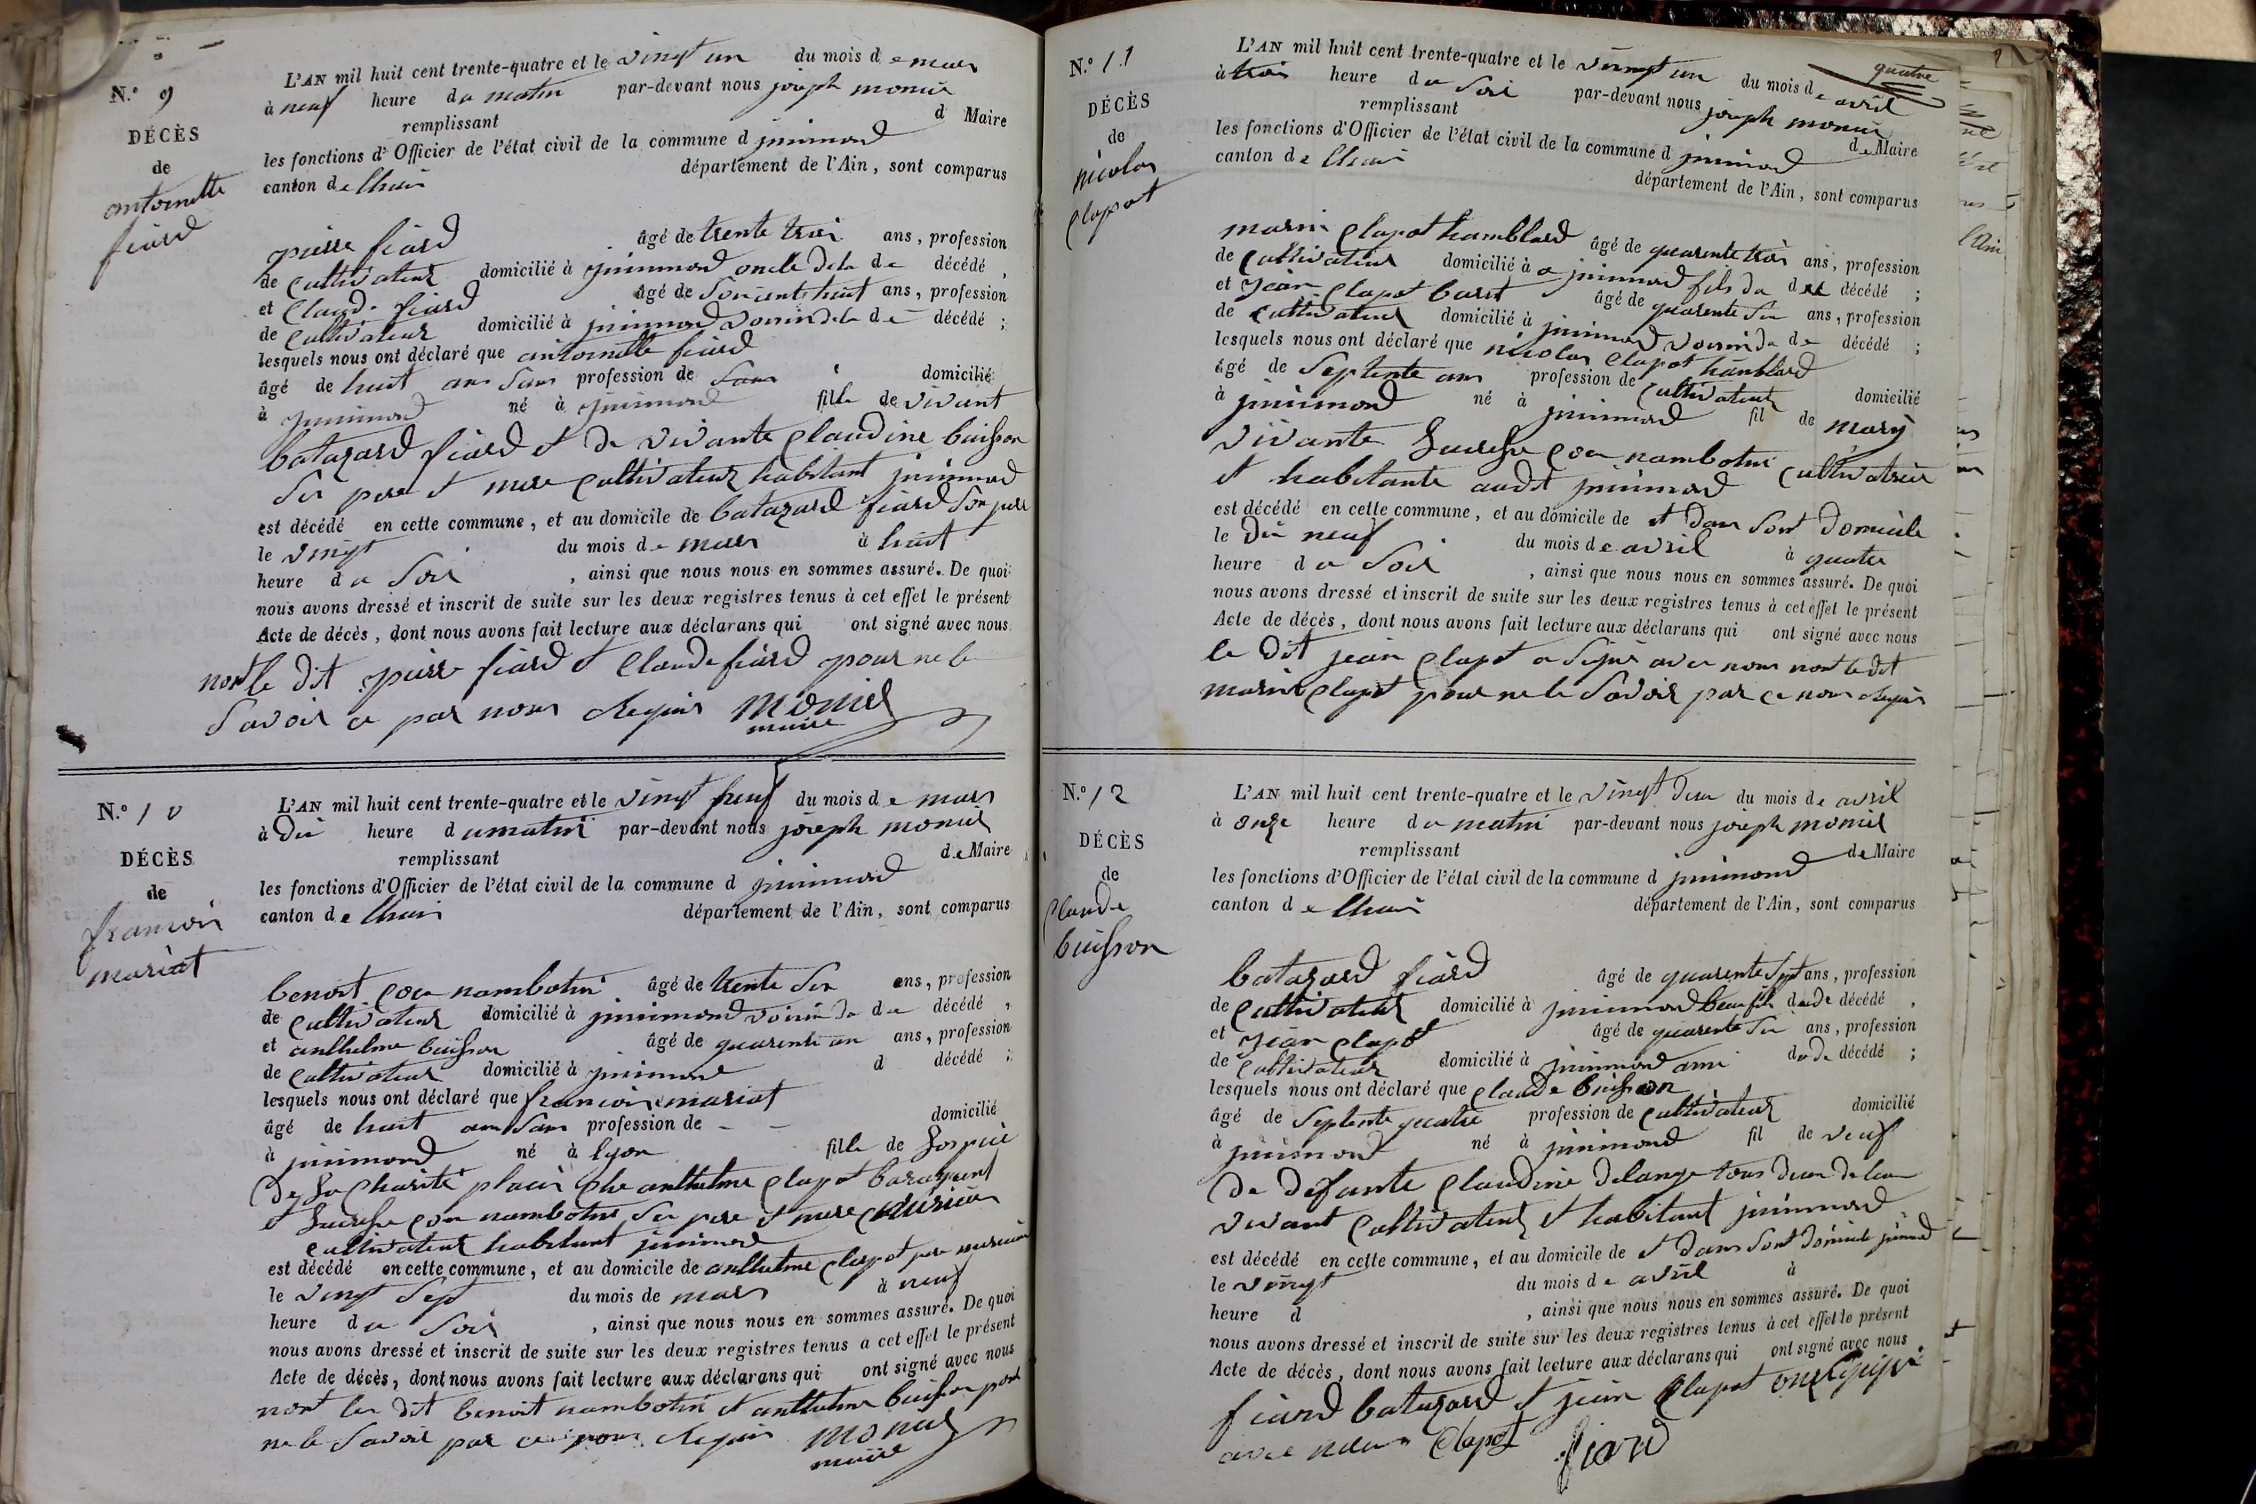 N.° 9
DÉCÈS
de
antoinette
fiard
L'AN mil huit cent trente-quatre et le vingt un du mois d e mars
à neuf heure du matin par-devant nous joseph monier
remplissant d Maire
les fonctions d'Officier de l'état civil de la commune d
canton de département de l'Ain, sont comparus
pierre fiard âgé de trente trois ans, profession
de cultivateur domicilié à oncle dela de décédé,
et Claude fiard âgé de ans, profession
de cultivateur domicilié à voisin dela de décédé;
lesquels nous ont déclaré que antoinette fiard
âgé de huit ans sans profession de sans domicilié
à né à fille de vivant
batazard fiard et de vivante Claudine buisson
ses pere et mere cultivateur habitant
est décédé en cette commune, et au domicile de batazard fiard son pere
le vingt du mois de mars à huit
heure du soir, ainsi que nous nous en sommes assuré. De quoi
nous avons dressé et inscrit de suite sur les deux registres tenus à cet effet le présent
Acte de décès, dont nous avons fait lecture aux déclarans qui ont signé avec nous
non le dit pierre fiard et Claude fiard pour ne le
savoir ce par nous requis monier
maire
N.° 10
DÉCÈS
de
francois
mariat
L'AN mil huit cent trente-quatre et le vingt neuf du mois d e mars
à dix heure du matin par-devant nous joseph monier
remplissant de Maire
les fonctions d'Officier de l'état civil de la commune d
canton de département de l'Ain, sont comparus
benoit nambotin âgé de trente six ans, profession
de cultivateur domicilié à voisin du décédé,
et anthelme buisson âgé de quarente un ans, profession
de cultivateur domicilié à d décédé;
lesquels nous ont déclaré que francois mariat
âgé de huit ans sans profession de - -
domicilié
à né à lyon fille de hospice
de la Charité placé che anthelme Clapot
et nambotin ses pere et mere
cultivateur habitant
est décédé en cette commune, et au domicile de anthelme Clapot pere
le vingt sept du mois de mars à neuf
heure du soir, ainsi que nous nous en sommes assuré. De quoi
nous avons dressé et inscrit de suite sur les deux registres tenus a cet effet le présent
Acte de décès, dont nous avons fait lecture aux déclarans qui ont signé avec nous
non les dit benoit nambotin et anthelme buisson pour
ne le savoir par ce nous requis monier
maire
quatre
N.° 11
DÉCÈS
de
nicolas
Clapot
L'AN mil huit cent trente-quatre et le vingt un du mois de avril
à trois heure du soir par-devant nous joseph monier
remplissant de Maire
les fonctions d'Officier de l'état civil de la commune d
canton de département de l'Ain, sont comparus
marin Clapot hamblard âgé de quarente trois ans, profession
de cultivateur domicilié à fils du décédé;
et jean Clapot âgé de quarente six ans, profession
de cultivateur domicilié à voisin du décédé;
lesquels nous ont déclaré que nicolas Clapot hamblard
âgé de septente ans profession de cultivateur domicilié
à né à fil de
vivante nambotin cultivatrice
et habitante audit
est décédé en cette commune, et au domicile de et dans sont domicile
le dix neuf du mois de avril à quatre
heure du soir, ainsi que nous nous en sommes assuré. De quoi
nous avons dressé et inscrit de suite sur les deux registres tenus à cet effet le présent
Acte de décès, dont nous avons fait lecture aux déclarans qui ont signé avec nous
le dit jean Clapot a signé avec nous non le dit
marin Clapot pour ne le savoir par ce nous requis
N.° 12
DÉCÈS
de
Claude
buisson
L'AN mil huit cent trente-quatre et le vingt deux du mois de avril
à onze heure du matin par-devant nous joseph monier
remplissant de Maire
les fonctions d'Officier de l'état civil de la commune d
canton de département de l'Ain, sont comparus
batazard fiard âgé de quarente sept ans, profession
de cultivateur domicilié à beaufils du décédé,
et jean Clapot âgé de quarente six ans, profession
de cultivateur domicilié à ami du décédé;
lesquels nous ont déclaré que Claude buisson
âgé de septente quatre profession de cultivateur domicilié
à né à fil de veuf
de defunte Claudine delange tous deux de leur
vivant cultivateur et habitant
est décédé en cette commune, et au domicile de et dans sont domicile
le vingt du mois de avril à
heure d, ainsi que nous nous en sommes assuré. De quoi
nous avons dressé et inscrit de suite sur les deux registres tenus à cet effet le présent
Acte de décès, dont nous avons fait lecture aux déclarans qui ont signé avec nous
fiard batazard et jean Clapot ont signé
avec nous Clapot fiard